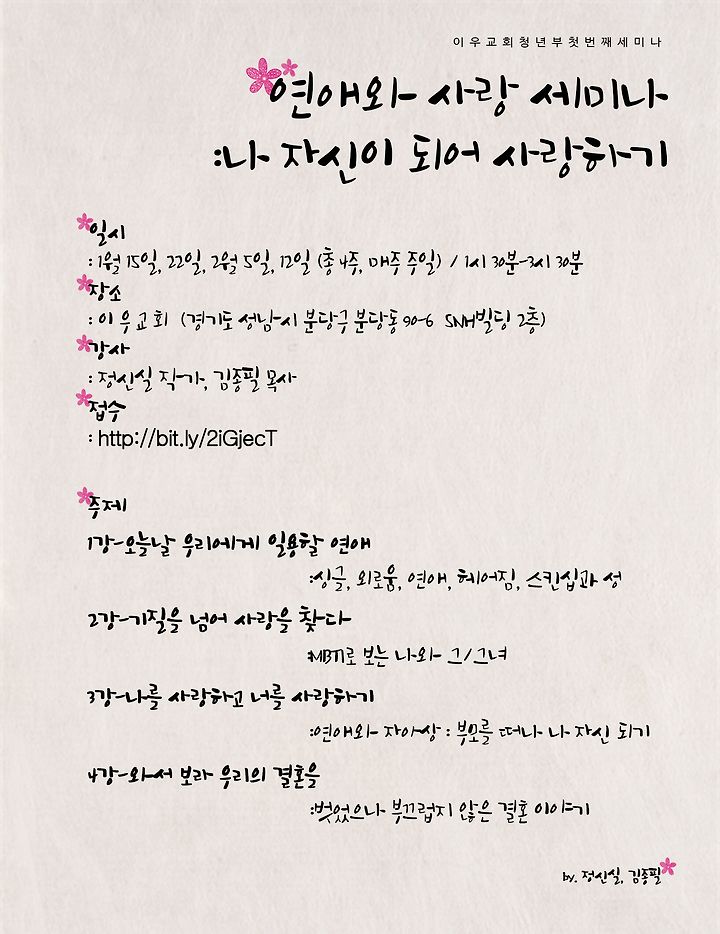 이우교회청년부첫번째세미나
연애와 사랑 세미나
:나 자신이 되어 사랑하기
일시
: 1월 15일, 22일, 2월 5일, 12일 (총 4주, 매주 주일) / 1시 30분-3시 30분
장소
: 이우교회 (경기도 성남시 분당구 분당동 90-6 SNH빌딩 2층)
강사
: 정신실 작가, 김종필 목사
접수
: http://bit.ly/2iGjecT
주제
1강-오늘날 우리에게 일용할 연애
:싱글, 외로움, 연애, 헤어짐, 스킨십과 성
2강-기질을 넘어 사랑을 찾다
:MBTI로 보는 나와 그/그녀
3강-나를 사랑하고 너를 사랑하기
:연애와 자아상 : 부모를 떠나 나 자신 되기
4강-와서 보라 우리의 결혼을
:벗었으나 부끄럽지 않은 결혼 이야기
by. 정신실, 김종필